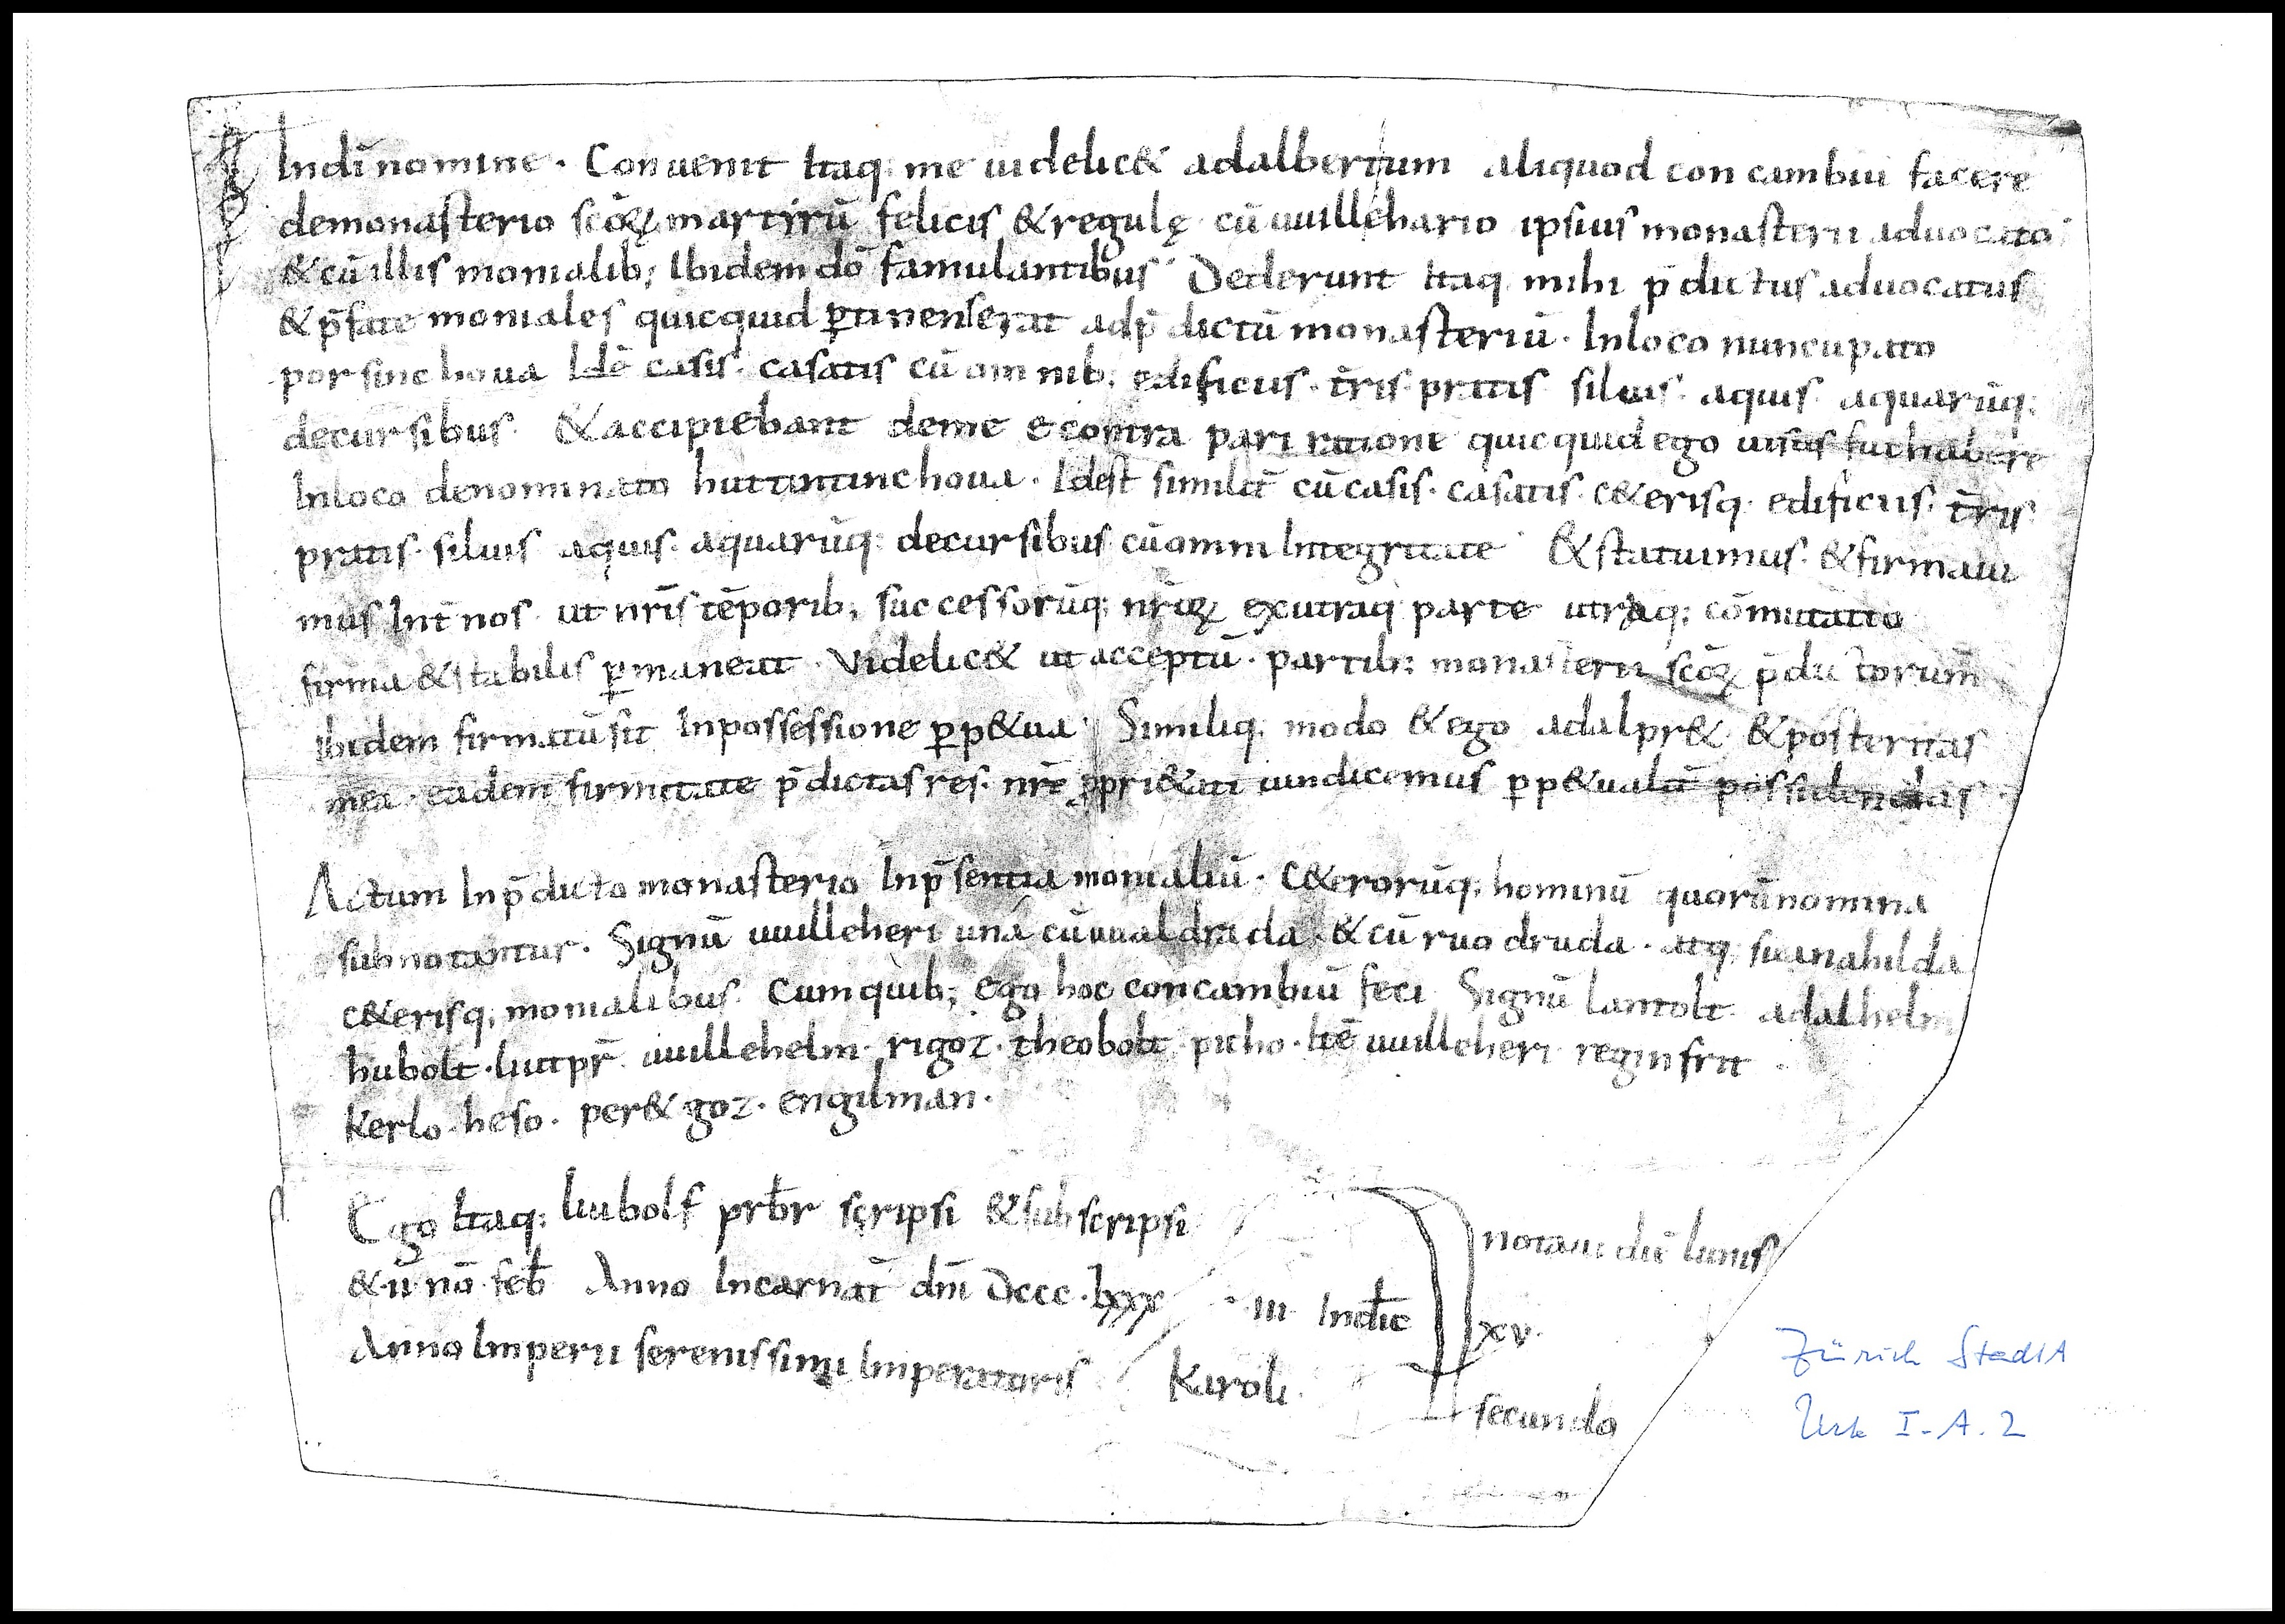 Indī nomine · Conuenit Itaq: me uidelic& adalbertum aliquod concambiū facere
demonasterio scōꝝ martirū felicis & regulę cū uuillehario ipsius monasterii aduocato
& cū illis monialib; Ibidem dō famulantibus Dederunt Itaq mihi p̄dictus aduocatus
& p̄fate moniales quicquid ꝑtinens erat ad p̄dictū monasteriū · Inloco nuncupato
porsinchoua Idē casis · casatis cū omnib; edificiis · t̄ris pratis siluis · aquis aquarūq:
decursibus · & accipiebant deme econtra pari ratione quicquid ego uisus fui habere
Inloco denominato huttintinchoua · Idest similit̄ cū casis · casatis · c&erisq edificiis · t̄ris
pratis · siluis aquis · aquarūq: decursibus cū omni Integritate & statuimus · & firmaui
mus Int̄ nos ut nr̄is tēporib; successorūq; nr̄oꝝ exutraq parte utraq; cōmutatio
firma & stabilis ꝑmaneat · Videlic& ut acceptū · partib; monasterii scōꝝ p̄dictorum
Ibidem firmatū sit Inpossessione ꝑp&ua Similiq; modo & ego adalpr& & posteritas
mea · eadem firmitate p̄dictas res · nr̄e ꝓpri&ati uindicemus ꝑp&ualit̄ possidendas
Actum Inp̄dicto monasterio Inp̄sentia monialiū · C&erorūq; hominū quorū nomina
subnotantur · Signū uuilleheri una cū uualdrada · & cū ruodruda · atq; suanahilda
c&erisq; monialibus · Cum quib; ego hoc concambiū feci Signū lantolt · adalhelm
hubolt · liutpr̄ · uuillehelm · rigoz · theobolt · picho · Itē uuilleheri reginfrit
Kerlo · heso · per&goz · engilman ·
Ego Itaq: liubolf prb̄r scripsi & subscripsi notaui diē lunis
& ·ii· nō · feb̄ Anno Incarnat̄ dn̄i Dccc · lxxx iii Indic̄ xv ·
Anno Imperii serenissimi Imperatoris Karoli · secundo
Zürich StadtA
Urk I. A. 2